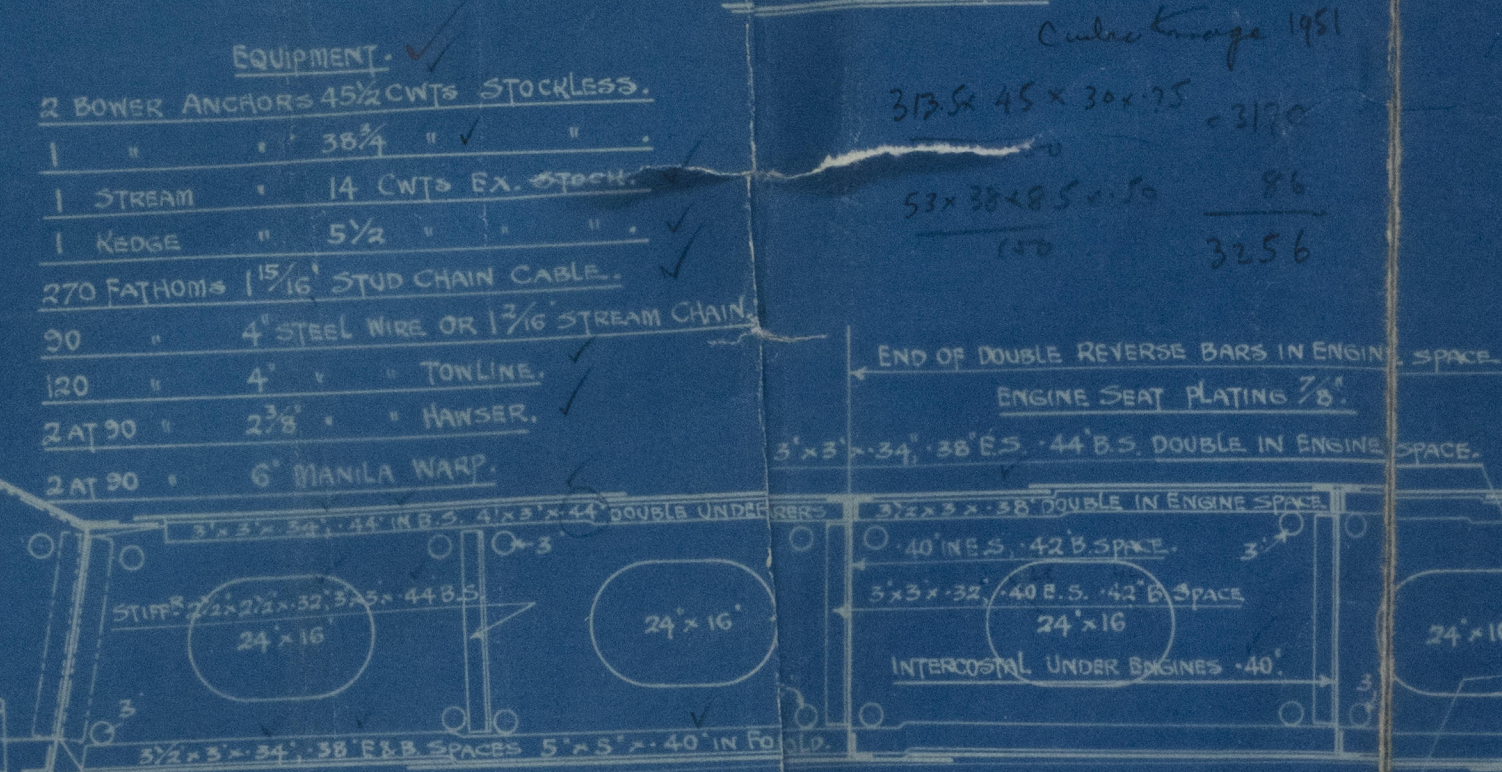 EQUIPMENT.
2 BOWER ANCHORS 45½ CWTS STOCKLESS.
1 " " 38¾ " " .
1 STREAM " 14 CWTS EX. STOCK.
1 KEDGE " 5½ " " " .
270 FATHOMS 1 15/16" STUD CHAIN CABLE.
90 " 4" STEEL WIRE OR 1 2/16" STREAM CHAIN.
120 " 4" " " TOWLINE.
2 AT 90 " 2⅜" " " HAWSER.
2 AT 90 " 6" MANILA WARP.
1951
313.5 x 45 x 30 x .75
= 3170
53 x 38 x 8.5 x .50
150
86
3256
END OF DOUBLE REVERSE BARS IN ENGINE SPACE
ENGINE SEAT PLATING 7/8".
3"x3"x.34", .38"E.S. .44"B.S. DOUBLE IN ENGINE SPACE.
3"x3"x.34", .44" IN B.S. 4"x3"x.44" DOUBLE UNDER
3½x3x.38" DOUBLE IN ENGINE SPACE
3"
.40" IN E.S, .42"B.SPACE.
3"
STIFFRS 2½"x2½"x.32", 3"x3"x.44 B.S.
3"x3"x.32", .40 E.S. .42" B. SPACE
24"x16"
24"x16"
24"x16
24"x16
INTERCOSTAL UNDER ENGINES .40".
3"
3"
3½"x3"x.34", .38"E&B. SPACES 5"x5"x.40" IN FO LD.